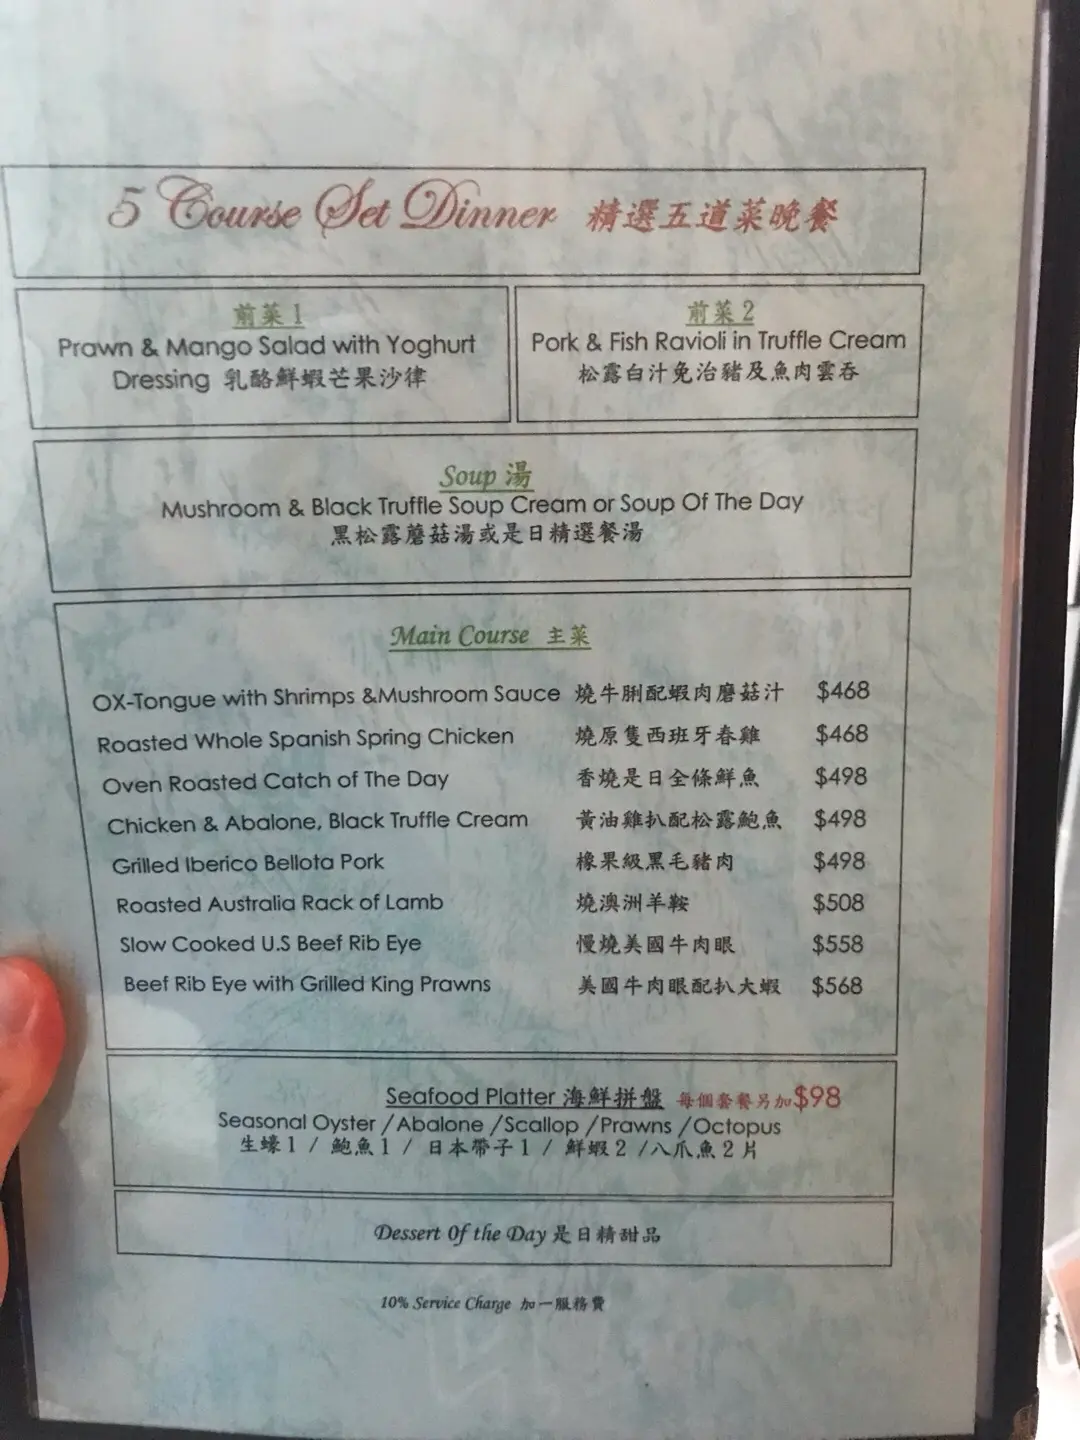 5 Course Set Dinner 精選五道菜晚餐
前菜1
Prawn & Mango Salad with Yoghurt
Dressing 乳酪鮮蝦芒果沙律
前菜2
Pork & Fish Ravioli in Truffle Cream
松露白汁免治豬及魚肉雲吞
Soup 湯
Mushroom & Black Truffle Soup Cream or Soup Of The Day
黑松露蘑菇湯或是日精選餐湯
Main Course 主菜
OX-Tongue with Shrimps &Mushroom Sauce 燒牛脷配蝦肉磨菇汁 $468
Roasted Whole Spanish Spring Chicken 燒原隻西班牙春雞 $468
Oven Roasted Catch of The Day 香燒是日全條鮮魚 $498
Chicken & Abalone, Black Truffle Cream 黃油雞扒配松露鮑魚 $498
Grilled Iberico Bellota Pork 橡果級黑毛豬肉 $498
Roasted Australia Rack of Lamb 燒澳洲羊鞍 $508
Slow Cooked U.S Beef Rib Eye 慢燒美國牛肉眼 $558
Beef Rib Eye with Grilled King Prawns 美國牛肉眼配扒大蝦 $568
Seafood Platter 海鮮拼盤 每個套餐另加$98
Seasonal Oyster /Abalone /Scallop /Prawns /Octopus
生蠔1 / 鮑魚1 / 日本帶子1 / 鮮蝦2 /八爪魚2片
Dessert Of the Day 是日精甜品
10% Service Charge 加一服務費